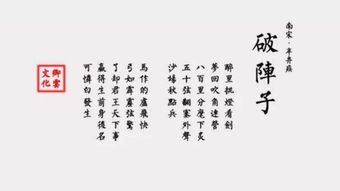 南宋·辛弃疾
破陣子
醉里挑燈看劍
夢回吹角連營
八百里分麾下炙
五十弦翻塞外聲
沙場秋點兵
馬作的盧飛快
弓如霹靂弦驚
了却君王天下事
贏得生前身後名
可憐白發生
卿雲
文化